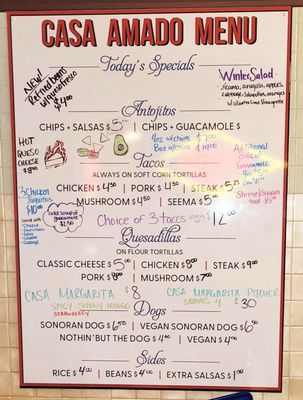 CASA AMADO MENU
Today's Specials
NEW!
Refried beans
w/queso fresco
$4.00
Winter Salad
jicama, arugula, apples,
cabbage, oranges
w/ cilantro lime Vinaigrette
Antojitos
CHIPS + SALSAS $5 CHIPS + GUACAMOLE $
4oz w/chips $7.00
8oz w/chips $14.00
HOT
QUESO
CHEESE
$8.00
Tacos
ALWAYS ON SOFT CORN TORTILLAS
CHICKEN $4.50 PORK $4.50 STEAK $5.25
MUSHROOM $4.50 SEEMA $5
Additional
Side of
Guacamole
4oz $5
Shrimp/Squash
taco $5
3 Chicken
Taquitos
$10.00
Served with
Add Scoop of
Guacamole
$2.50
Choice of 3 tacos $12.00
Quesadillas
ON FLOUR TORTILLAS
CLASSIC CHEESE $5.00 CHICKEN $8.00 STEAK $9.00
PORK $8.00 MUSHROOM $7.00
CASA MARGARITA $8
SPICY - SKINNY - MANGO
STRAWBERRY
CASA MARGARITA PITCHER
SERVES 4 $30
Dogs
SONORAN DOG $6.50 VEGAN SONORAN DOG $6.50
NOTHIN' BUT THE DOG $4.00 VEGAN $4.00
Sides
RICE $4.00 BEANS $4.00 EXTRA SALSAS $1.00